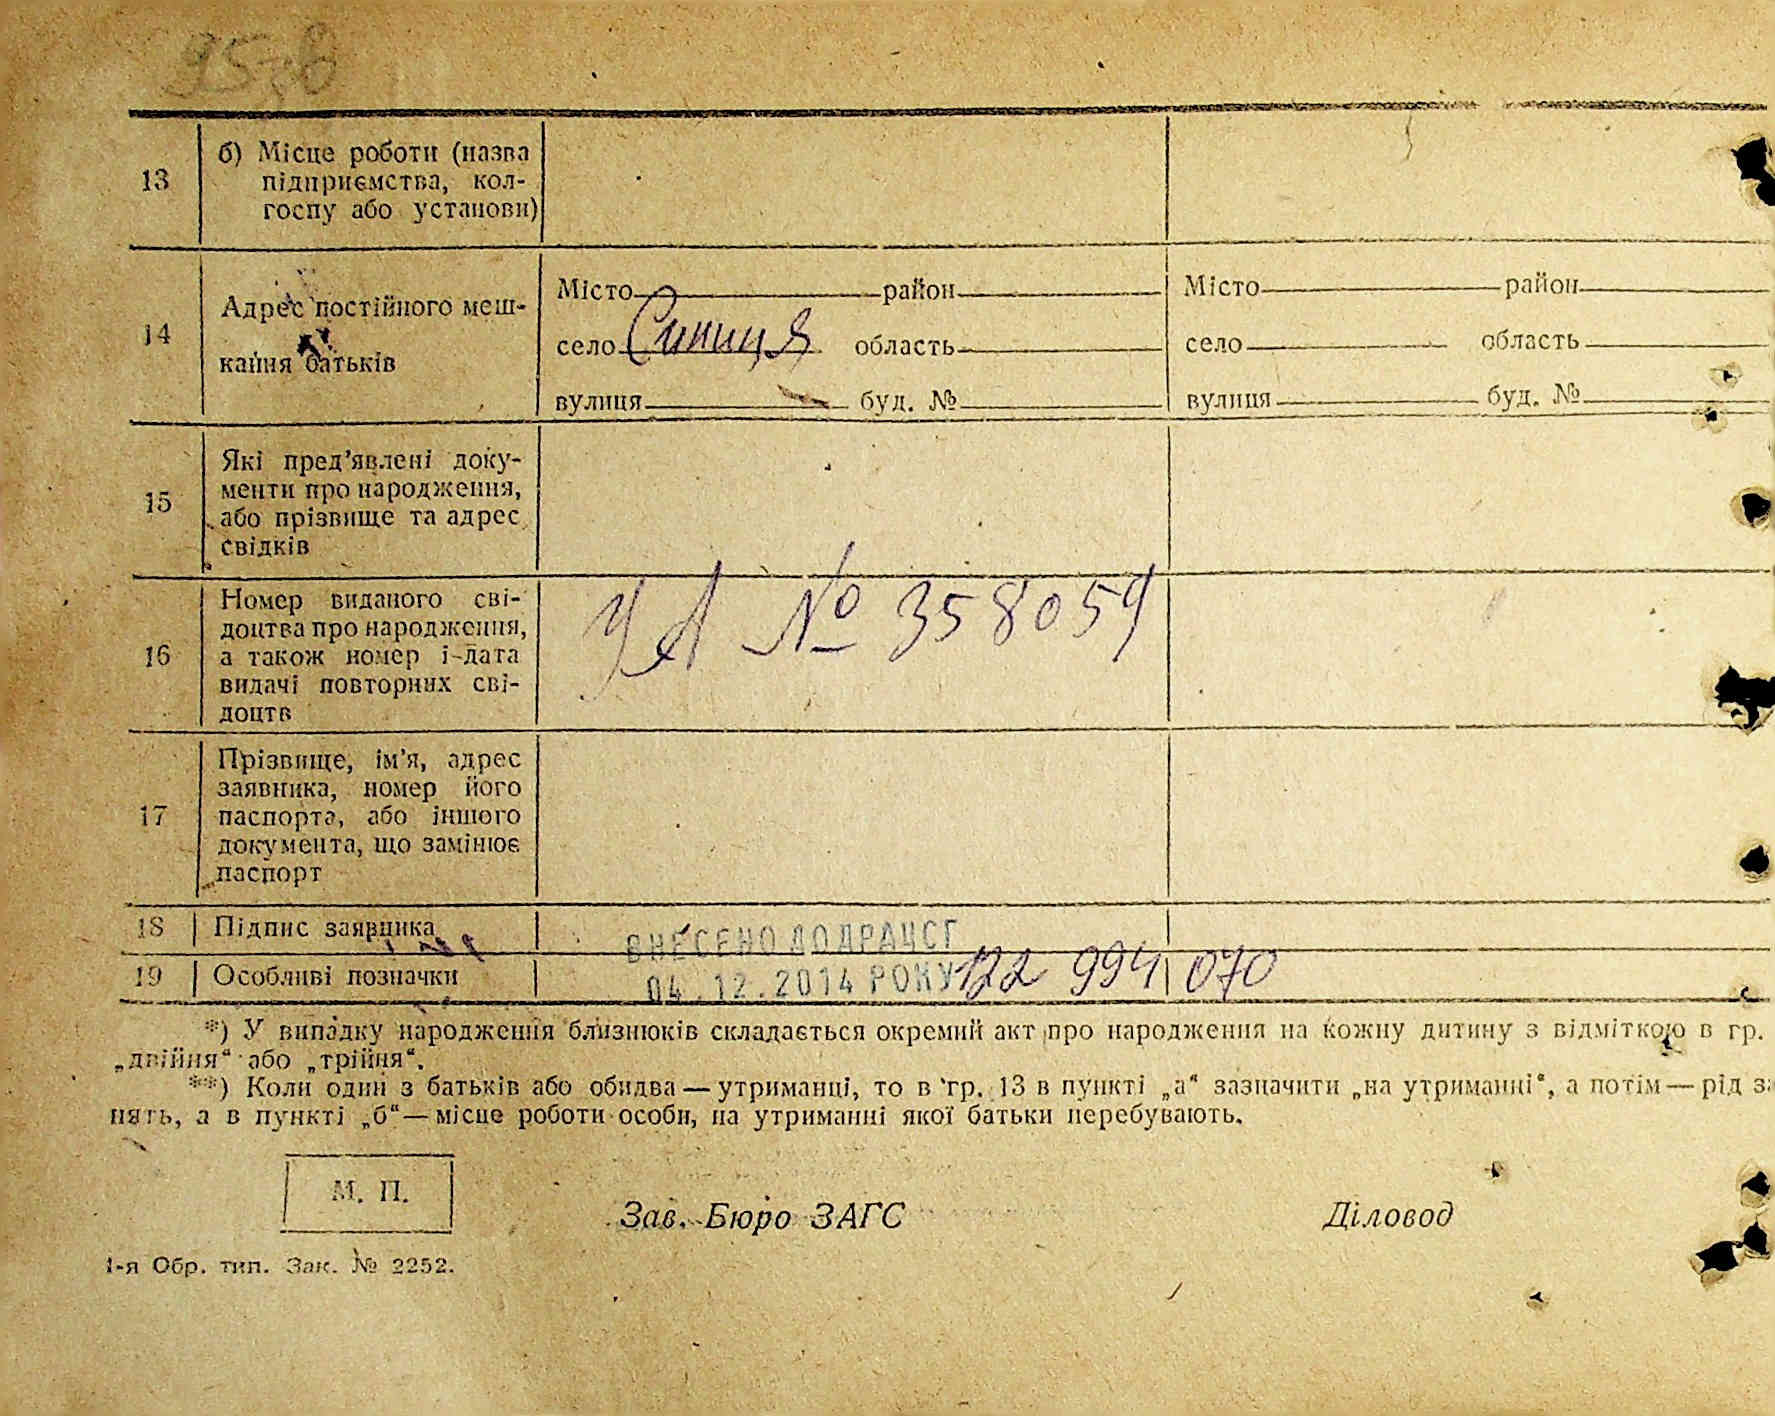 95 зв
13
б) Місце роботи (назва
підприємства, кол-
госпу або установи)
14
Адрес постійного меш-
кання батьків
Місто район
село Синиця область
вулиця буд. №
Місто район
село область
вулиця буд. №
15
Які пред’явлені доку-
менти про народження,
або прізвище та адрес
свідків
16
Номер виданого сві-
доцтва про народження,
а також номер і дата
видачі повторних сві-
доцтв
УА № 358059
17
Прізвище, ім’я, адрес
заявника, номер його
паспорта, або іншого
документа, що замінює
паспорт
18
Підпис заявника
ВНЕСЕНО ДО ДРАЦСГ
19
Особливі позначки
04.12.2014 РОКУ 122 994 070
*) У випадку народження близнюків складається окремий акт про народження на кожну дитину з відміткою в гр.
„двійня“ або „трійня“.
**) Коли один з батьків або обидва — утриманці, то в гр. 13 в пункті „а“ зазначити „на утриманні“, а потім — рід за-
нять, а в пункті „б“ — місце роботи особи, на утриманні якої батьки перебувають.
М. П.
Зав. Бюро ЗАГС
Діловод
1-я Обр. тип. Зак. № 2252.